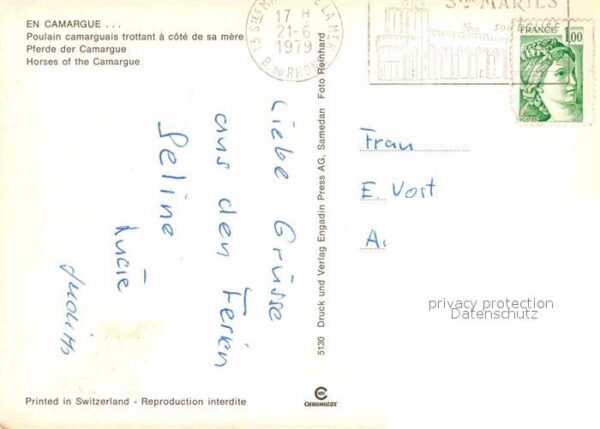 EN CAMARGUE ...
Poulain camarguais trottant à côté de sa mère
Pferde der Camargue
Horses of the Camargue
17 H
21-6
1979
B. DU RHONE
STES MARIES
FRANCE 1,00
POSTES
Liebe Grüsse
aus den Ferien
Seline
Lucie
Judith
5130 Druck und Verlag Engadin Press AG, Samedan Foto Reinhard
Frau
E. Vost
A.
privacy protection
Datenschutz
Printed in Switzerland - Reproduction interdite
CHROMOLUX